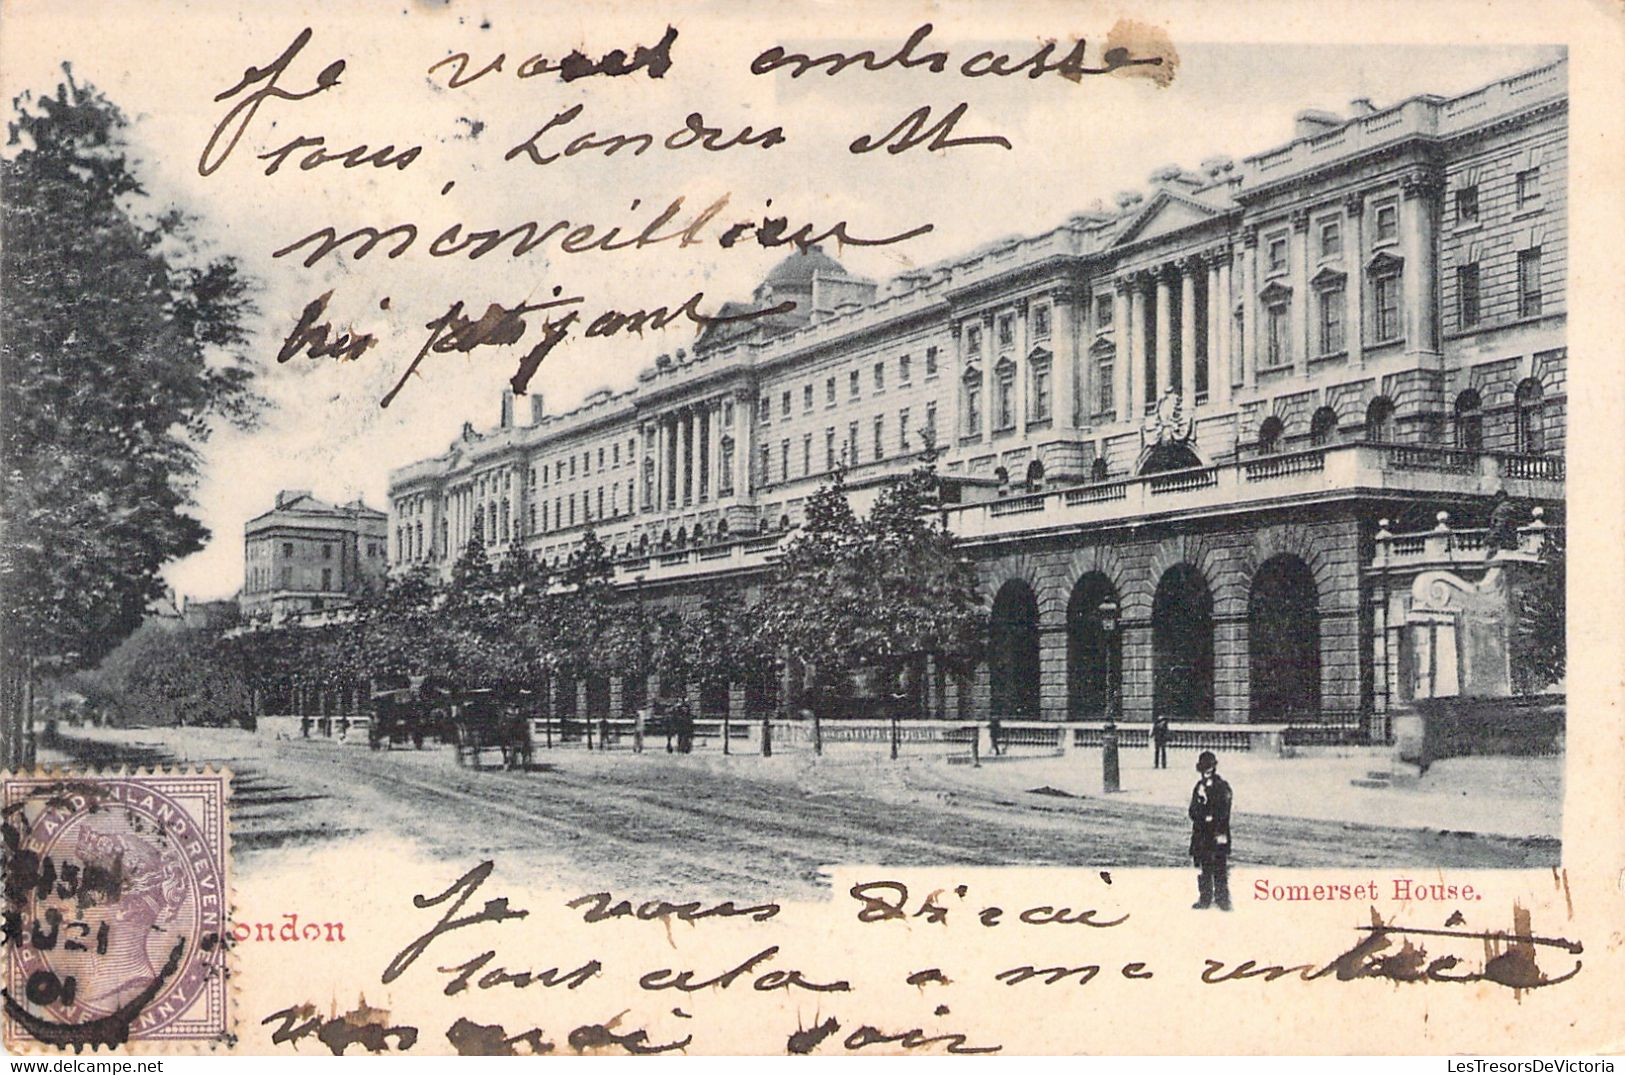 Je vous embrasse
tous, Londres est
merveilleux
Somerset House.
London
Je vous dirai
tout cela a ma rentrée
soir
POSTAGE AND INLAND REVENUE
ONE PENNY
JU 21
01
LesTresorsDeVictoria